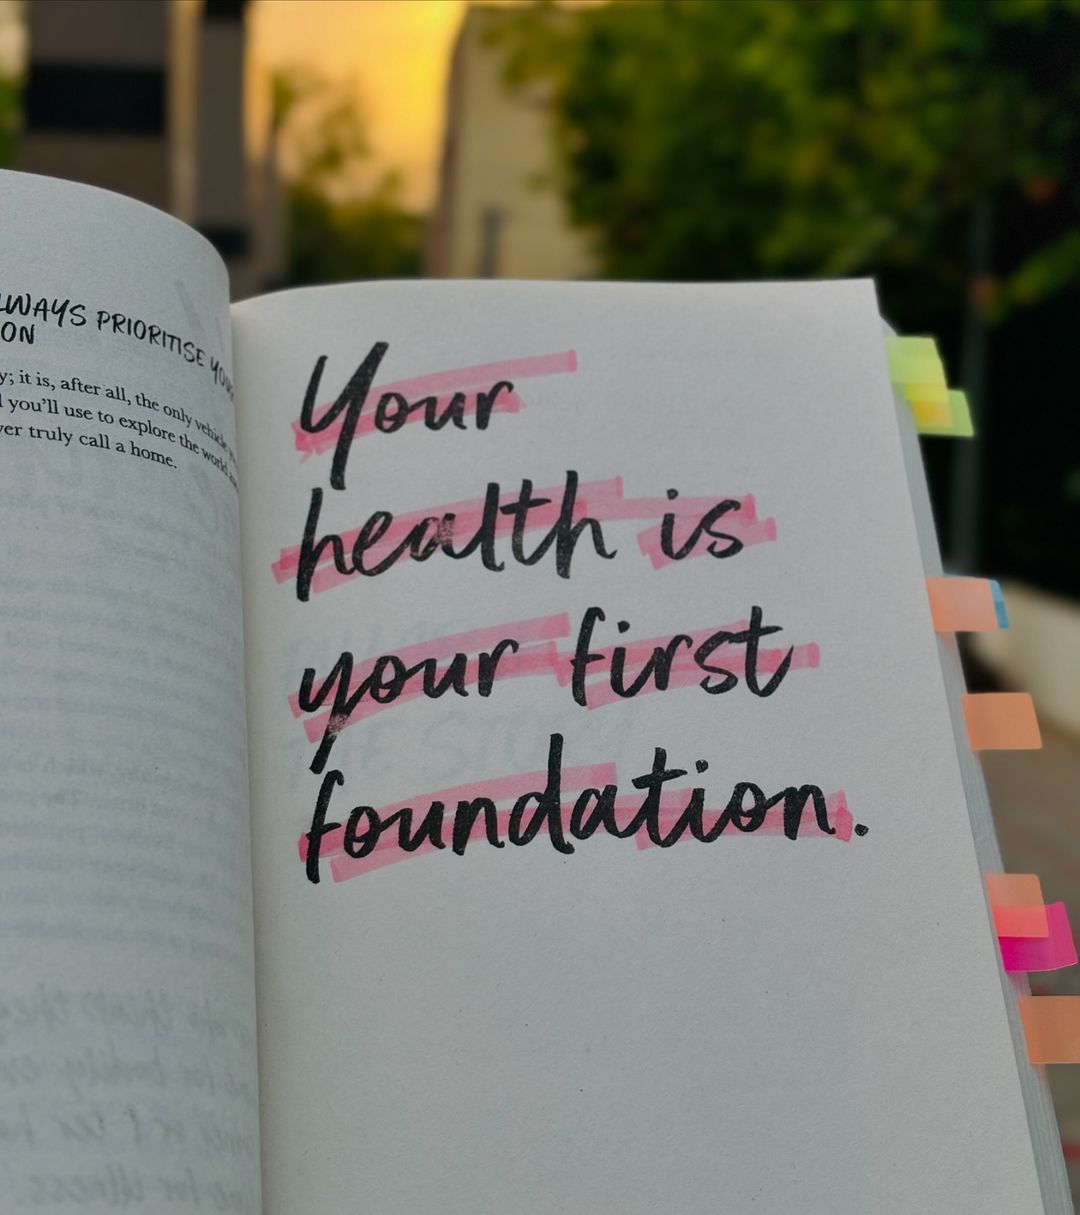 LWAYS PRIORITISE YOUR
ON
y; it is, after all, the only vehicle
you'll use to explore the world
ver truly call a home.
Your
health is
your first
foundation.